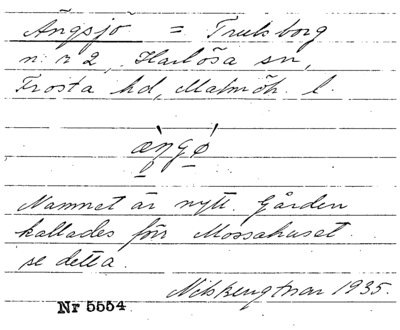 Ängsjö = Truls borg
n:r 2, Harlösa sn,
Frosta hd, Malmöh. l.
Namnet är nytt. Gården
kallades förr Mossahuset.
se detta.
Nils Bengtsson 1935.
Nr 5554